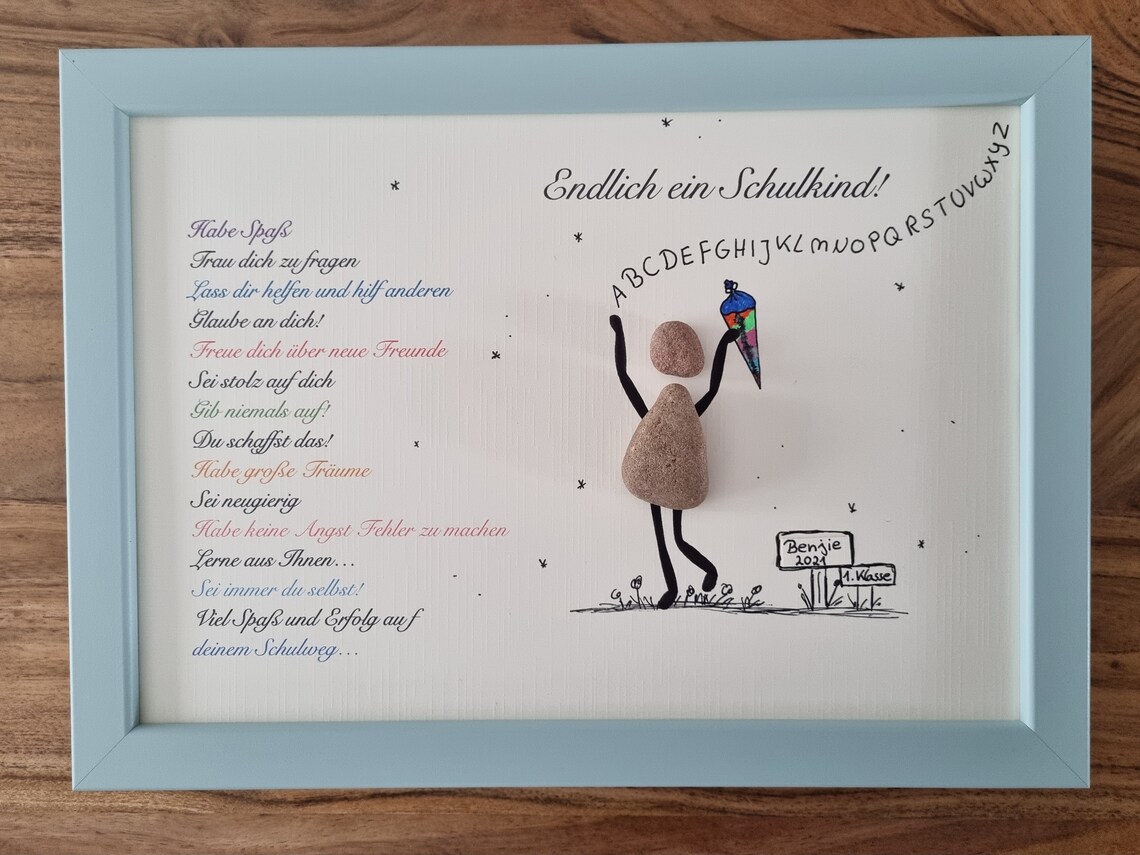 Endlich ein Schulkind!
ABCDEFGHIJKLMNOPQRSTUVWXYZ
Habe Spaß
Trau dich zu fragen
Lass dir helfen und hilf anderen
Glaube an dich!
Freue dich über neue Freunde
Sei stolz auf dich
Gib niemals auf!
Du schaffst das!
Habe große Träume
Sei neugierig
Habe keine Angst Fehler zu machen
Lerne aus Ihnen...
Sei immer du selbst!
Viel Spaß und Erfolg auf
deinem Schulweg...
Benjie
2021
1. Klasse